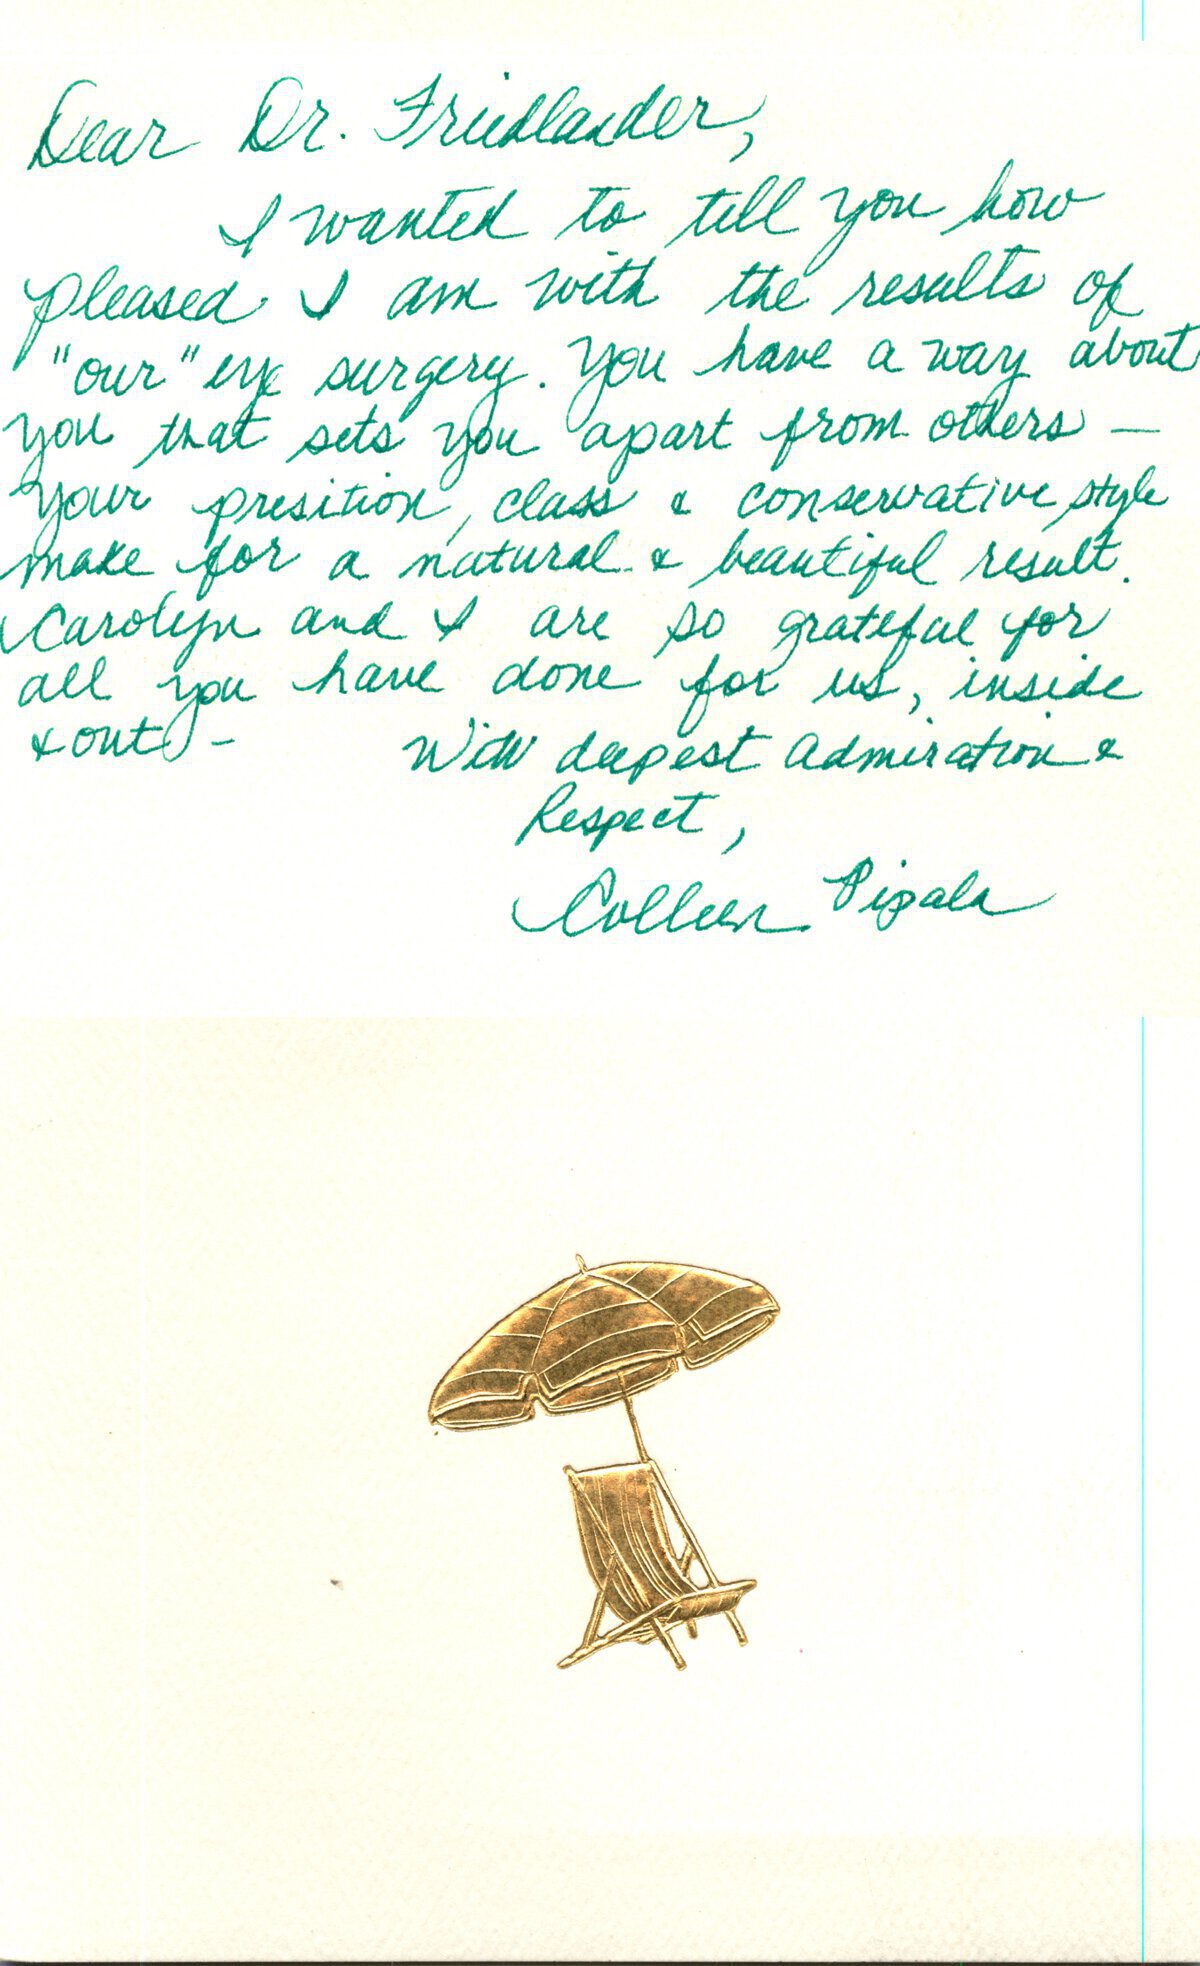 Dear Dr. Friedlander,
I wanted to tell you how
pleased I am with the results of
"our" eye surgery. You have a way about
you that sets you apart from others —
your presition, class & conservative style
make for a natural & beautiful result.
Carolyn and I are so grateful for
all you have done for us, inside
& out -
With deepest admiration &
Respect,
Colleen